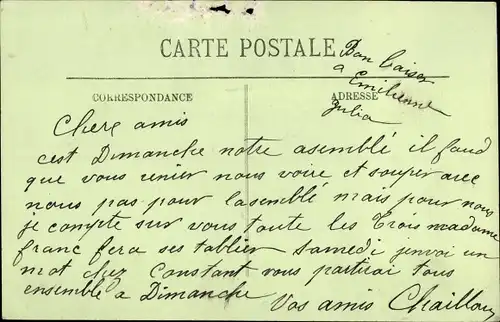 CARTE POSTALE
Bon Baiser
a Emilienne
Julia
CORRESPONDANCE
ADRESSE
Chere amis
cest Dimanche notre asemblé il faud
que vous venier nous voire et souper avec
nous pas pour lasemblé mais pour nous
je compte sur vous toute les trois madame
franc fera ses tablier samedi jenvoi un
mot chez Constant vous partirai tous
ensemble a Dimanche
Vos amis Chaillou